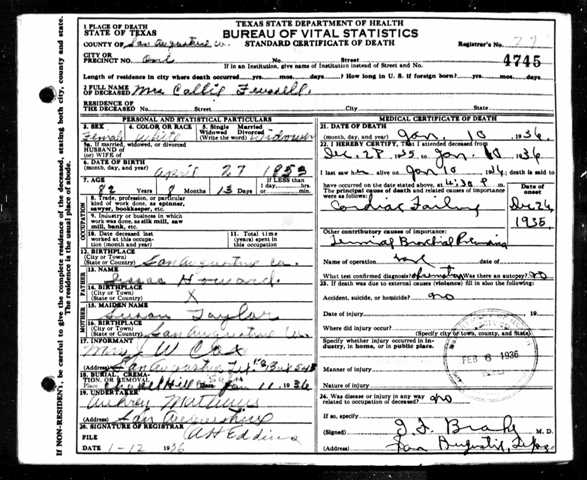 TEXAS STATE DEPARTMENT OF HEALTH
BUREAU OF VITAL STATISTICS
STANDARD CERTIFICATE OF DEATH
1 PLACE OF DEATH
STATE OF TEXAS
COUNTY OF San Augustine Co.
CITY OR
PRECINCT NO. One No. Street
Registrar's No. 77
4745
If in an Institution, give name of Institution instead of Street and No.
Length of residence in city where death occurred yrs. mos. days. ? How long in U. S. if foreign born? yrs. mos. days.
2 FULL NAME OF DECEASED Mrs Callie
RESIDENCE OF THE DECEASED No. Street City State
PERSONAL AND STATISTICAL PARTICULARS
3. SEX 4. COLOR OR RACE 5. Single Married
Widowed Divorced
(Write the word)
Female White Widower
5a. If married, widowed, or divorced
HUSBAND OF
(or) WIFE OF
6. DATE OF BIRTH
(month, day, and year) April 27 1853
7. AGE If LESS than
82 Years 8 Months 13 Days 1 day, hrs. or min.
8. Trade, profession, or particular kind of work done, as spinner, sawyer, bookkeeper, etc.
9. Industry or business in work was done, as silk mill, saw mill, bank, etc.
10. Date deceased last worked at this occupation (month and year)
11. total time (years) spent in this occupation
12. BIRTHPLACE
(City or Town)
(State or Country) San Augustine Co.
13. NAME Howard
14. BIRTHPLACE
(City or Town)
(State or Country) X
15. MAIDEN NAME Susan Taylor
16. BIRTHPLACE
(City or Town)
(State or Country) San Augustine Co.
17 INFORMANT Mrs J W Cox
(Address) San Augustine Tex
18. BURIAL, CREMATION, OR REMOVAL
Place Chapel Hill Date Jan 11 1936
19. UNDERTAKER Aubrey Mathews
(Address) San Augustine
20. SIGNATURE OF REGISTRAR
FILE 1-12 1936 A H Eddins
MEDICAL CERTIFICATE OF DEATH
21. DATE OF DEATH
(month, day, and year) Jan. 10 1936
22. I HEREBY CERTIFY, That I attended deceased from
Dec. 28 1935 to Jan. 10 1936
I last saw alive on Jan 10 1936; death is said to
have occurred on the date stated above, at 4:30 P m.
The principal cause of death and related causes of importance were as follows: Date of onset
Cardiac Failure Dec 26
1935
Other contributory causes of importance:
Name of operation none date of
What test confirmed diagnosis? Was there an autopsy? no
23. If death was due to external causes (violence) fill in also the following:
Accident, suicide, or homicide? no
Date of injury 19
Where did injury occur?
(Specify city or town, county, and state)
Specify whether injury occurred in Industry, in home, or in public place.
FEB 6 1936
Manner of injury
Nature of injury
24. Was disease or injury in any way related to occupation of deceased? no
If so, specify
(Signed) M. D.
(Address) San Augustine, Texas
IF NON-RESIDENT, be careful to give the complete residence of the deceased, stating both city, county and state.
The residence is the usual place of abode.
OCCUPATION
FATHER
MOTHER